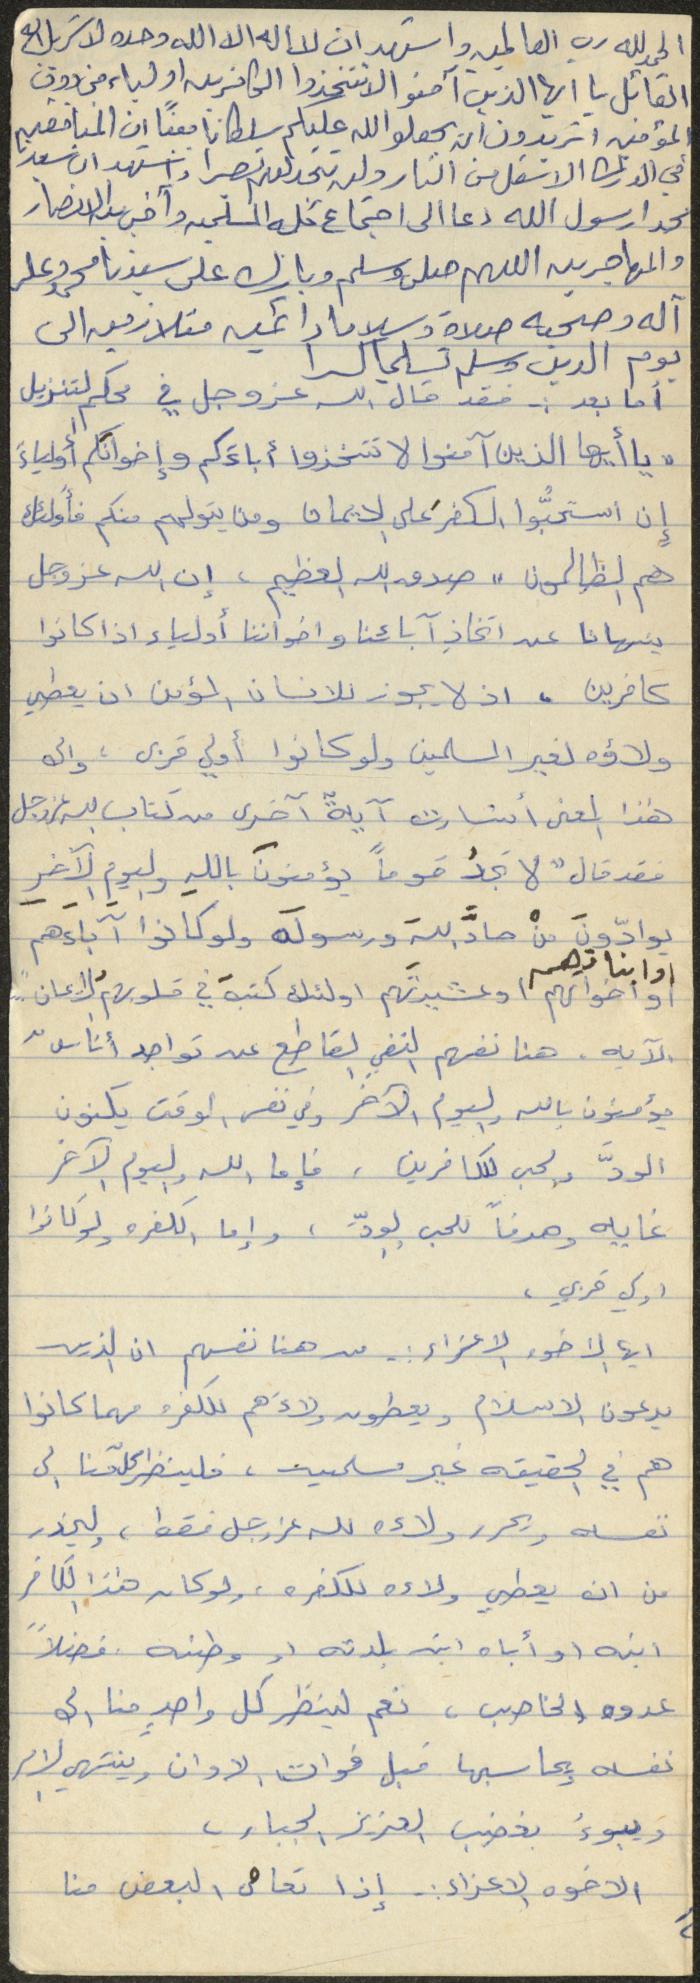 الحمد لله رب العالمين واشهد ان لا اله الا الله وحده لا شريك له
القائل يا ايها الذين آمنوا لا تتخذوا الكافرين اولياء من دون
المؤمنين اتريدون ان تجعلوا الله عليكم سلطانا مبينًا ان المنافقين
في الدرك الاسفل من النار ولن تجد لهم نصيرا واشهد ان سيدنا
محمدا رسول الله دعا الى اجتماع كلمة المسلمين وآخى بين الانصار
والمهاجرين اللهم صلي وسلم وبارك على سيدنا محمد وعلى
آله وصحبه صلاة وسلاما دائمين متلازمين الى
يوم الدين وسلم تسليما كثيرا
أما بعد :- فقد قال الله عز وجل في محكم التنزيل
" يا أيها الذين آمنوا لا تتخذوا أباءكم وإخوانكم أولياءَ
إن استحبُّوا الكفرَ على الايمان ومن يتولهم منكم فأولئك
هم الظالمون " صدق الله العظيم ، إن الله عز وجل
ينهانا عن اتخاذِ آبائنا واخواننا أولياء اذا كانوا
كافرين ، اذ لا يجوز للانسان المؤمن ان يعطي
ولاؤه لغير المسلمين ولو كانوا أولي قربى ، والى
هذا المعنى أشارت آيةٌ آخرى من كتاب الله عز وجل
فقد قال " لا تجدُ قوماً يؤمنونَ باللهِ واليومِ الآخرِ
يوادّونَ منْ حادَّ اللهَ ورسولَه ولو كانوا آباءَهم
او ابناءهم
او اخوانهم او عشيرتَهم اولئك كتبَ في قلوبهم الايمان "
الآيه . هنا نفهم النفي القاطع عن تواجد أناس
يؤمنون بالله واليوم الآخر وفي نفس الوقت يكنون
الودَّ والحب للكافرين ، فإما الله واليوم الآخر
غايه وهدفاً للحب والودّ ، وإما الكفره ولو كانوا
اولي قربى ،
ايها الاخوه الاعزاء :- من هنا نفهم ان الذين
يدعون الاسلام ويعطون ولاءَهم للكفره مهما كانوا
هم في الحقيقه غير مسلمين ، فلينظر كلٌ منا الى
نفسه ويحرر ولاءه لله عز وجل فقط ، وليحذر
من ان يعطي ولاءه للكفره ، ولو كان هذا الكافر
ابنه او أباه ابن بلدته او وطنه . فضلاً
عدوه الغاصب ، نعم لينظر كل واحدٍ منا الى
نفسه يحاسبها قبل فوات الاوان وينتهي الامر
ويبوءُ بغضب العزيز الجبار ،
الاخوه الاعزاء :- إذا تعامى البعض منا